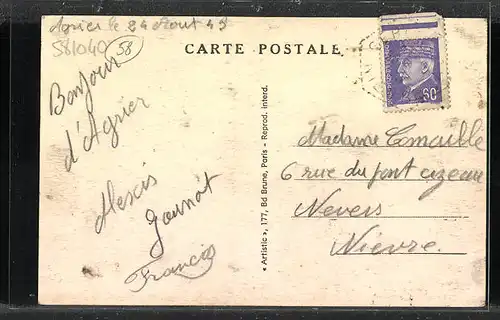 Agrier le 24 Aout 43
581040
58
CARTE POSTALE
Bonjour
d'Agrier
Alexis
Jaunot
Francis
« Artistic », 177, Bd Brune, Paris - Reprod. interd.
60
Madame Comaille
6 rue du pont cizeau
Nevers
Nièvre